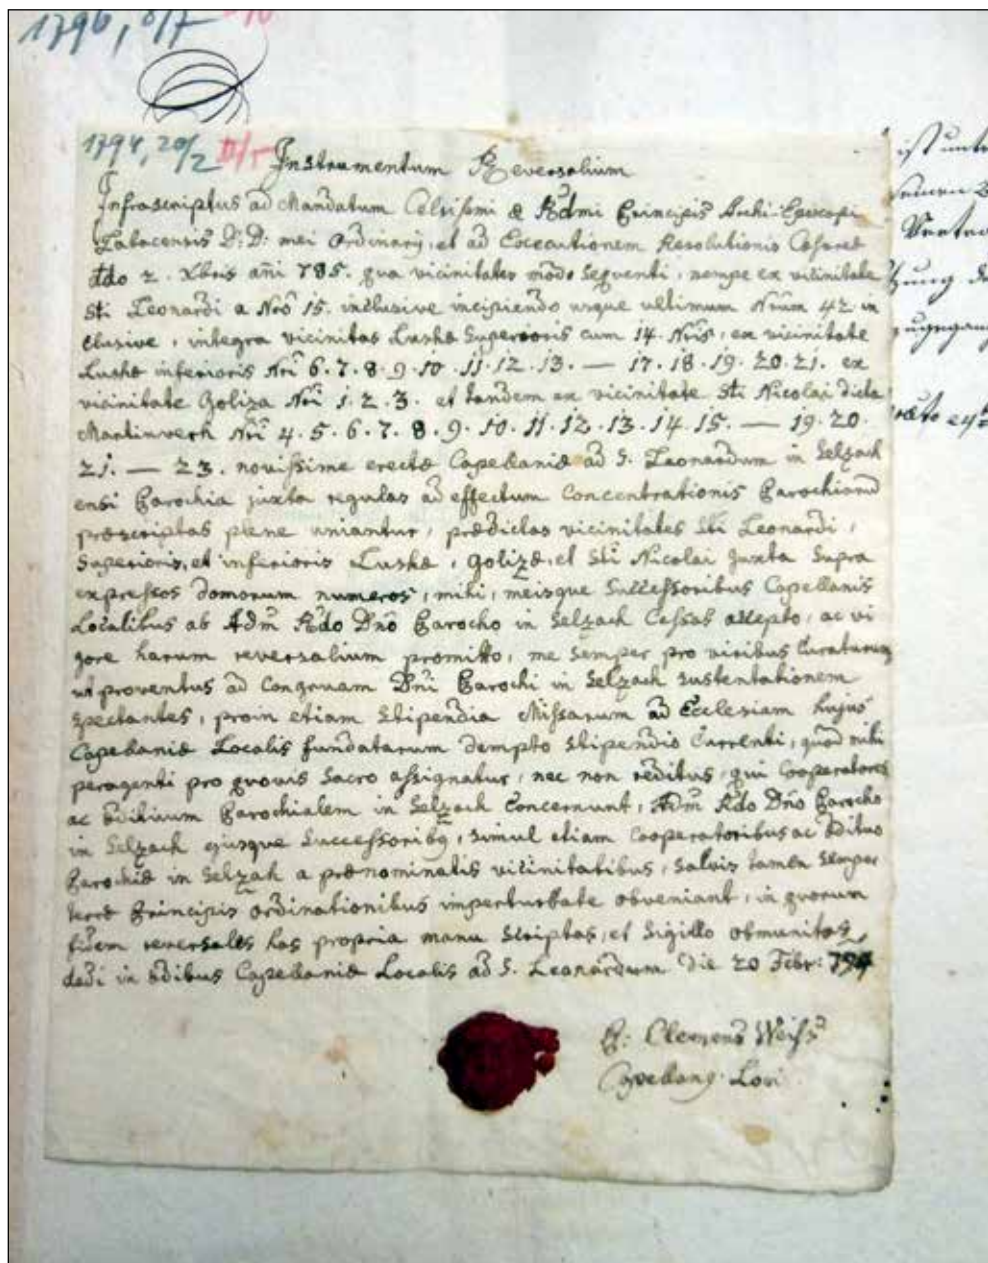 1796, 8/7
1794, 20/2 II/5
Instrumentum Reversalium
Infrascriptus ad Mandatum Celsissimi & Rdmi Principis Archi-Episcopi
Labacensis D: D: mei Ordinarij, et ad Executionem Resolutionis Cesareæ
ddo 2. Xbris añi 785. qua vicinitates modo sequenti, nempe ex vicinitate
Sti Leonardi a Nrô 15. inclusive incipiendo usque ultimum Nrũm 42. in
clusive, integra vicinitas Luskæ Superioris cum 14. Nris, ex vicinitate
Luskæ inferioris Nri 6. 7. 8. 9. 10. 11. 12. 13. — 17. 18. 19. 20. 21. ex
vicinitate Goliza Nri 1. 2. 3. et tandem ex vicinitate Sti Nicolai dicta
Martinverh Nri 4. 5. 6. 7. 8. 9. 10. 11. 12. 13. 14. 15. — 19. 20.
21. — 23. novissime erectæ Capellaniæ ad S. Leonardum in Selzach
ensi Parochia juxta regulas ad effectum Concentrationis Parochiarũ
præscriptas plene uniantur, prædictas vicinitates Sti Leonardi,
Superioris, et inferioris Luskæ, Golizæ, et Sti Nicolai juxta supra
expressos domorum numeros, mihi, meisque Successoribus Capellanis
Localibus ab Adm̃ Rdo Dnõ Parocho in Selzach Cessas accepto, ac vi
gore harum reversalium promitto, me semper pro viribus Curaturum
ut proventus ad Congruam Dñi Parochi in Selzach sustentationem
spectantes, proin etiam Stipendia Missarum ad Ecclesiam hujus
Capellaniæ Localis fundatarum dempto Stipendio Currenti, quod mihi
peragenti pro quovis Sacro assignatur, nec non reditus, qui Cooperatores
ac Ædituum Parochialem in Selzach Concernunt, Adm̃ Rdo Dnõ Parocho
in Selzach ejusque Successoribq, simul etiam Cooperatoribus ac Ædituo
Parochiæ in Selzah a prænominatis vicinitatibus, salvis tamen semper
terræ Principis ordinationibus imperturbate obveniant, in quorum
fidem reversales has propria manu Scriptas, et Sigillo obmunitas
dedi in Ædibus Capellaniæ Localis ad S. Leonardum die 20 Febr: 794
P: Clemens Weiss
Capellanq. Loci
ist unte